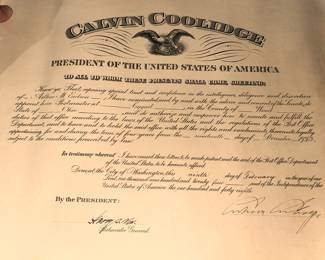 CALVIN COOLIDGE
PRESIDENT OF THE UNITED STATES OF AMERICA
TO ALL TO WHOM THESE PRESENTS SHALL COME, GREETING:
Know ye, That, reposing special trust and confidence in the intelligence, diligence and discretion
of Arthur M. I have nominated and, by and with the advice and consent of the Senate, do
appoint him Postmaster at in the County of Wood
State of Ohio and do authorize and empower him to execute and fulfill the
duties of that office according to the laws of the United States and the regulations of the Post Office
Department, and to have and to hold the said office with all the rights and emoluments thereunto legally
appertaining for and during the term of four years from the day of December, 19
subject to the conditions prescribed by law.
In testimony whereof I have caused these letters to be made patent and the seal of the Post Office Department
of the United States to be hereunto affixed.
Done at the City of Washington, this ninth day of February in the year of our
Lord, one thousand nine hundred and twenty four and of the Independence of the
United States of America the one hundred and forty eighth.
By the PRESIDENT:
Postmaster General.